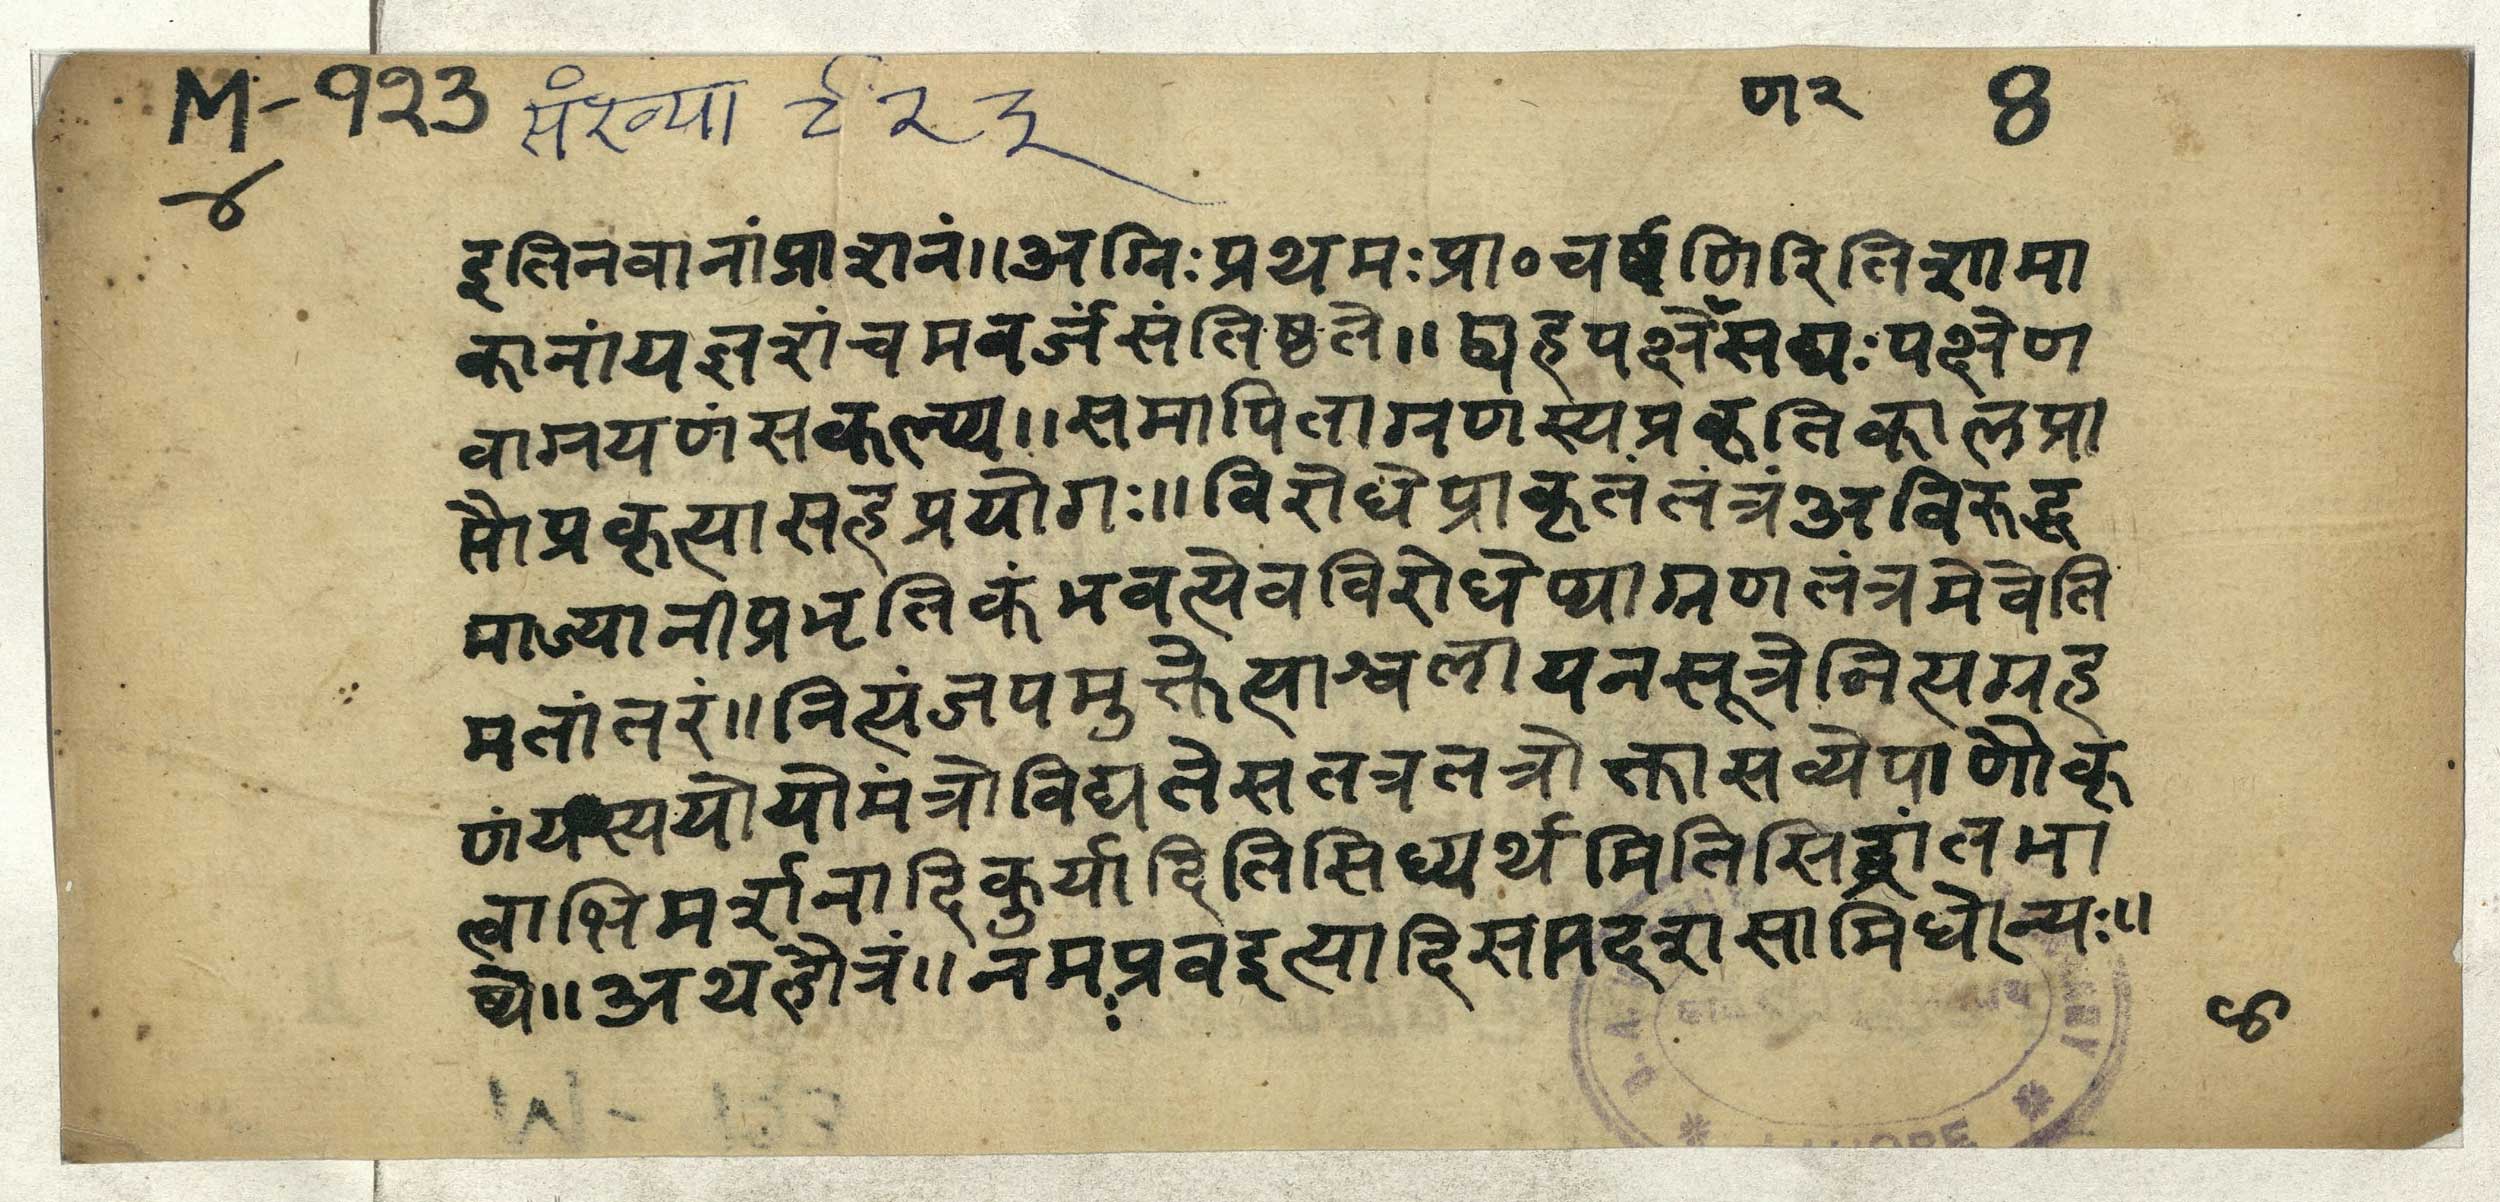 M-१२३ संख्या ९२३ ण२ 8
४
इतिनवानांप्राशनं॥अग्निःप्रथमःप्रा०चर्षणिरितिश्यामा
कानांयज्ञशंचमवर्जंसंतिष्ठते॥द्व्यहपक्षेँसद्यःपक्षेण
वाग्रयणंसकल्प्य॥समापिताग्रणस्यप्रकृतिकालप्रा
प्तौप्रकृत्यासहप्रयोगः॥विरोधेप्राकृतंतंत्रंअविरुद्ध
माज्यानीप्रभृतिकंभवत्येवविरोधेप्याग्रणतंत्रमेवेति
मतांतरं॥नित्यंजपमुक्तेत्याश्वलायनसूत्रेनित्यग्रह
णंयस्ययोयोमंत्रोविद्यतेसतत्रतत्रोक्तासव्येपाणौकृ
त्वाभिमर्शनादिकुर्यादितिसिध्यर्थमितिसिद्धांतभा
ष्ये॥अथहौत्रं॥नमःप्रवइत्यादिसप्तदशसामिधेन्यः॥
४
LAHORE